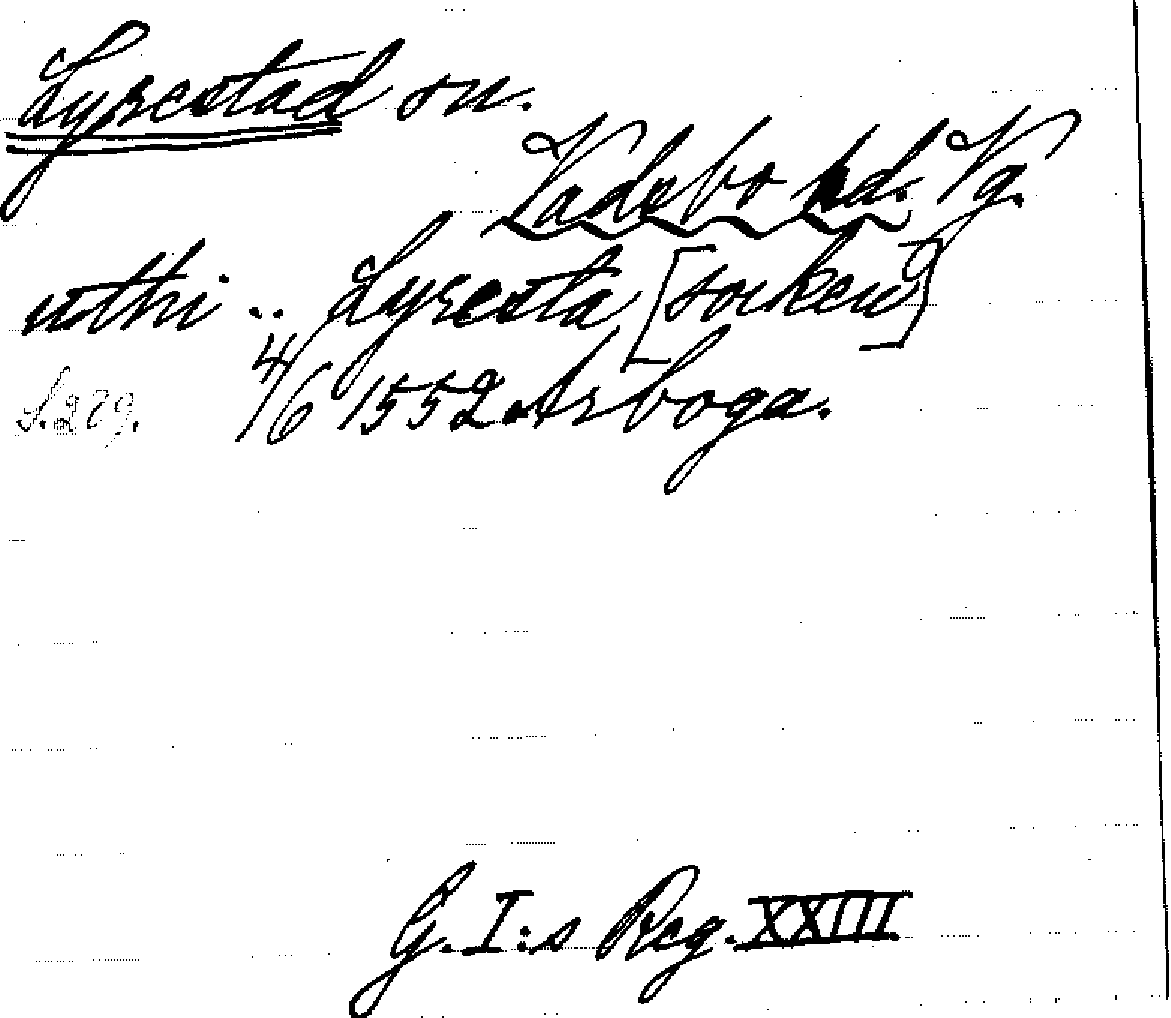 Lyrestad sn.
Vadsbo hd. Vg.
utthi .. Lyresta [socken]
S. 279. 4/6 1552 Arboga.
G. I:s Reg. XXIII